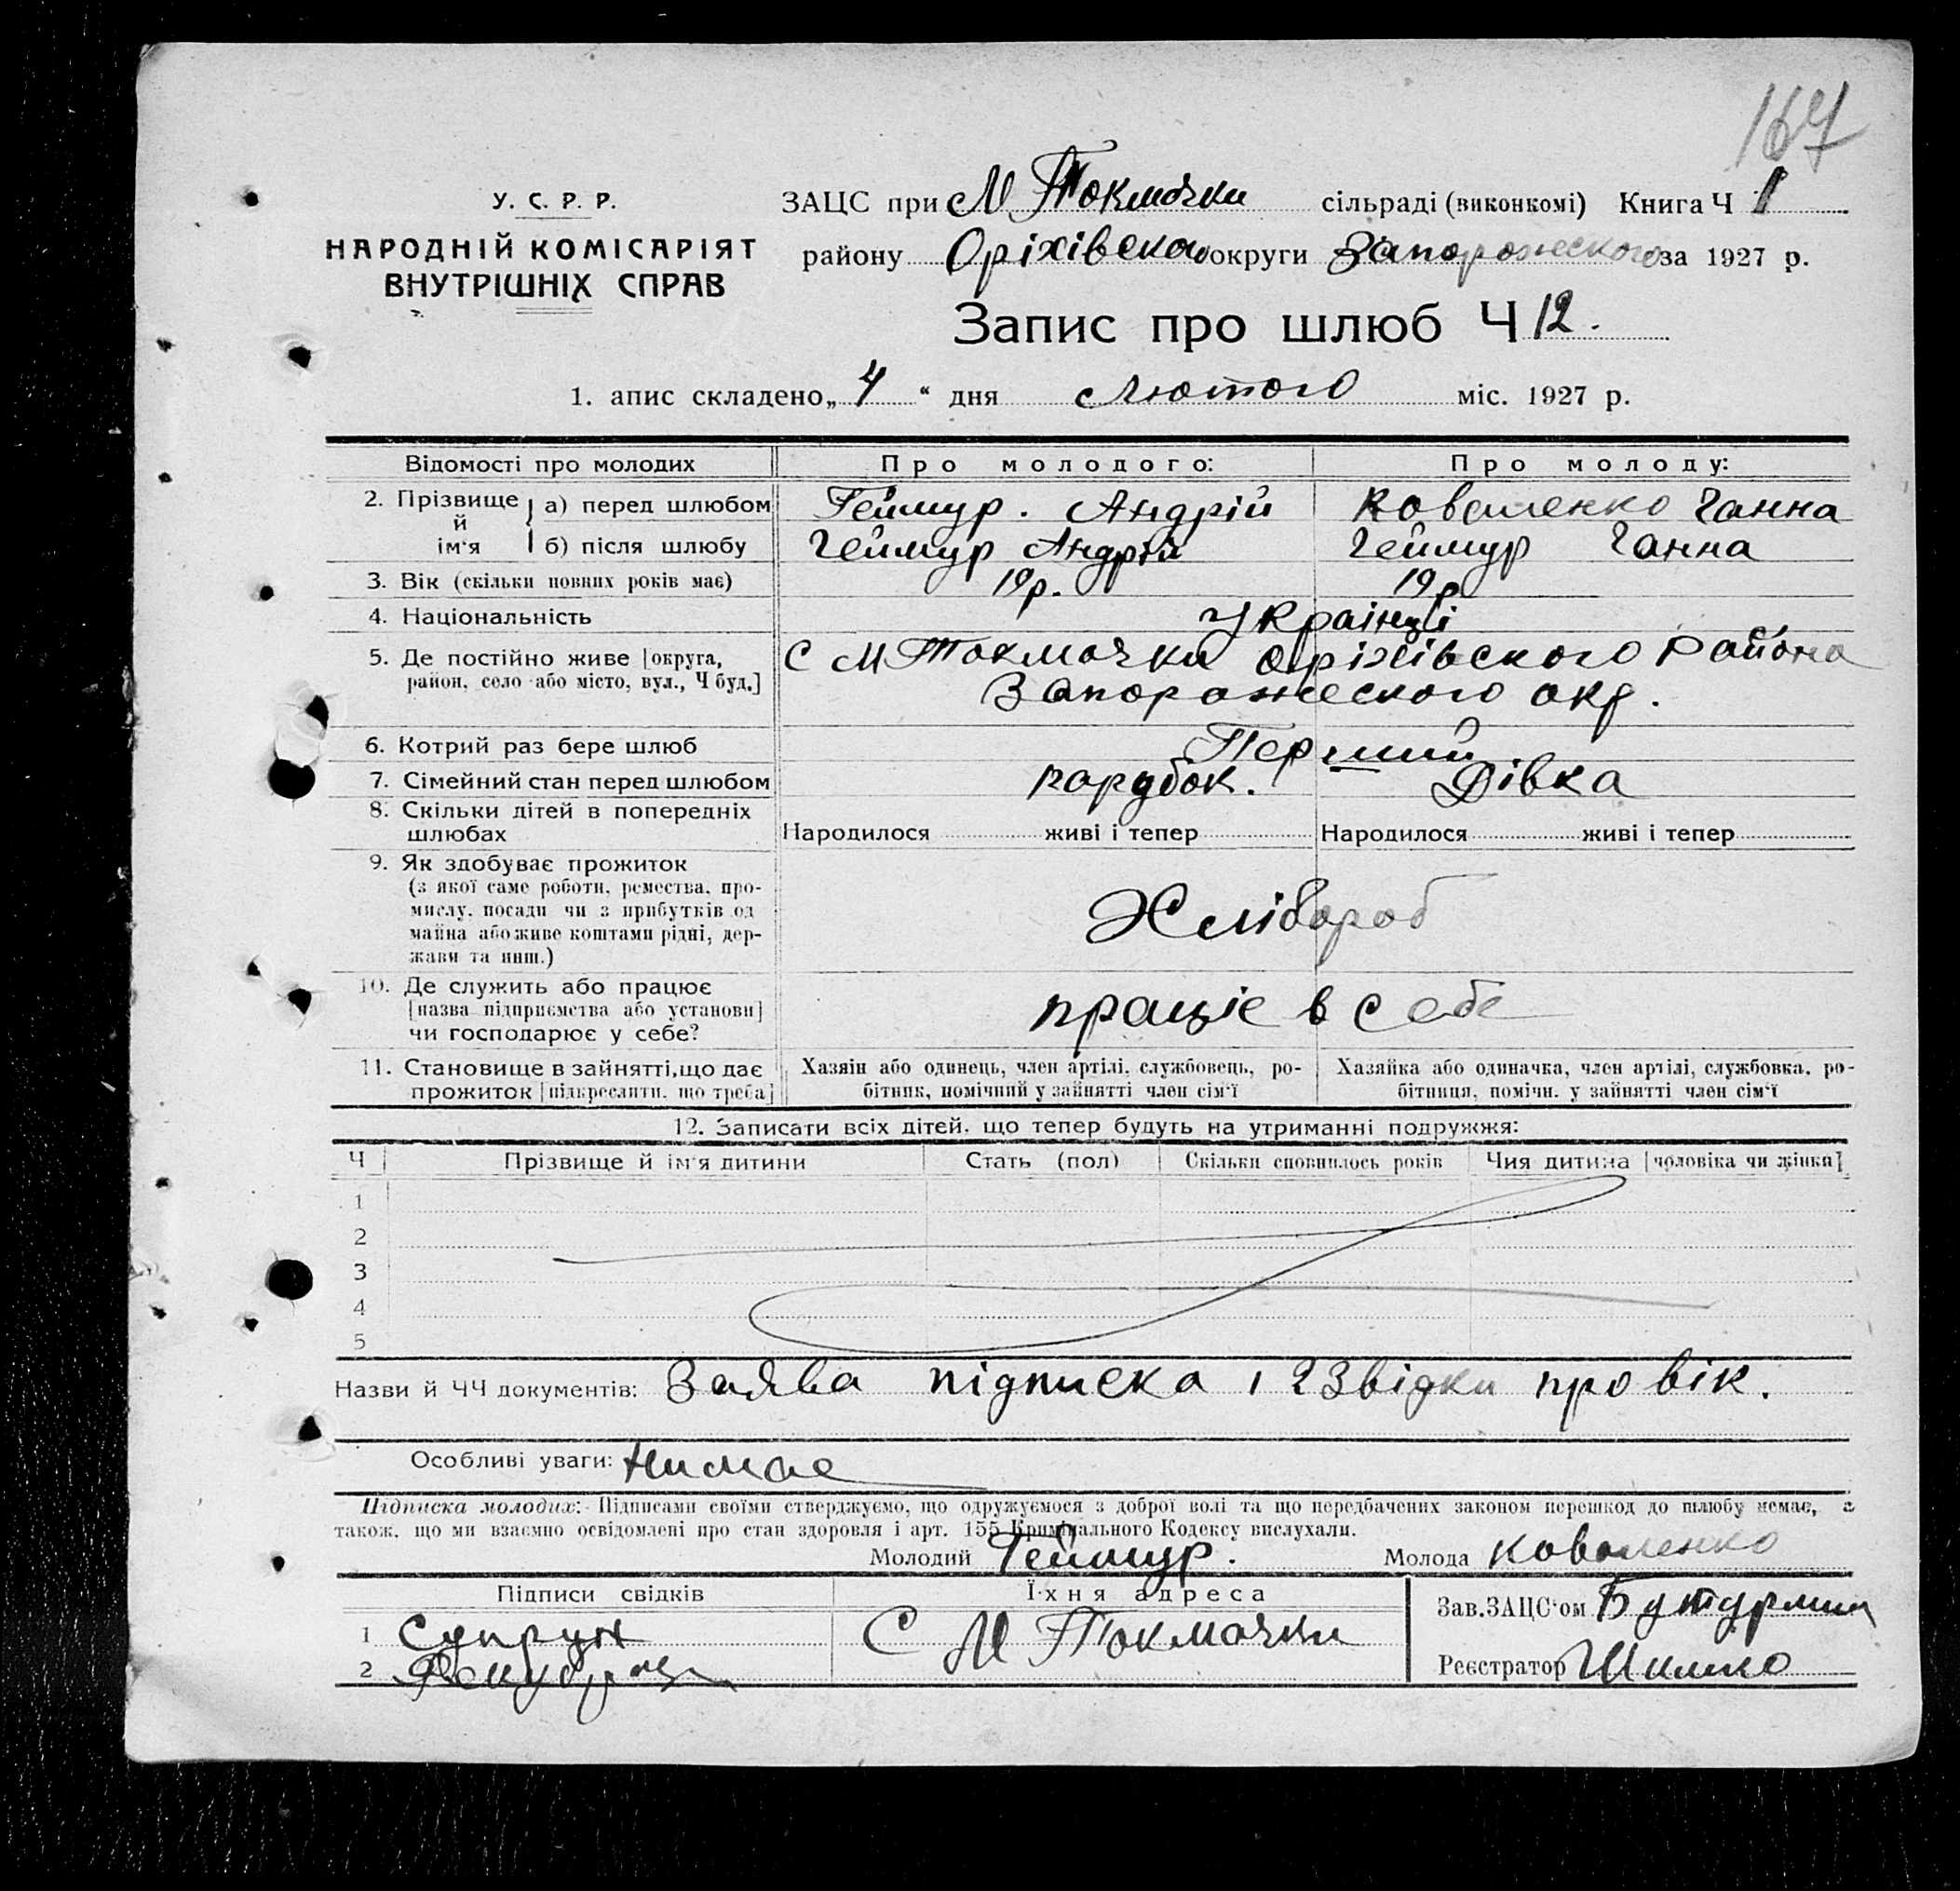 167
У. С. Р. Р.
НАРОДНІЙ КОМІСАРІЯТ
ВНУТРІШНІХ СПРАВ
ЗАЦС при М Токмачки сільраді (виконкомі) Книга Ч 1
району Оріхівского округи Запорожеского за 1927 р.
Запис про шлюб Ч 12.
1. апис складено „ 4 “ дня Лютого міс. 1927 р.
Відомості про молодих Про молодого: Про молоду:
2. Прізвище й ім‘я а) перед шлюбом Геймур. Андрій Коваленко Ганна
б) після шлюбу Геймур Андрій Геймур Ганна
3. Вік (скільки повних років має) 19р. 19р
4. Національність Українці
5. Де постійно живе [округа, С М Токмачки Оріхівского Района
район, село або місто, вул., Ч буд.] Запорожеского окр.
6. Котрий раз бере шлюб Перший
7. Сімейний стан перед шлюбом парубок. Дівка
8. Скільки дітей в попередніх
шлюбах Народилося живі і тепер Народилося живі і тепер
9. Як здобуває прожиток
(з якої саме роботи, ремества, про-
мислу, посади чи з прибутків од
майна або живе коштами рідні, дер-
жави та инш.)
Хлібороб
10. Де служить або працює
[назва підприємства або установи]
чи господарює у себе?
праціє в себе
11. Становище в зайнятті, що дає
прожиток [підкреслити, що треба]
Хазяін або одинець, член артілі, службовець, ро-
бітник, помічний у зайнятті член сім‘ї
Хазяйка або одиначка, член артілі, службовка, ро-
бітниця, помічн. у зайнятті член сім‘ї
12. Записати всіх дітей, що тепер будуть на утриманні подружжя:
Ч Прізвище й ім‘я дитини Стать (пол) Скільки сповнилось років Чия дитина [чоловіка чи жінки]
1
2
3
4
5
Назви й ЧЧ документів: Заява підписка і 2 Звідки про вік.
Особливі уваги: Нимае
Підписка молодих: Підписами своїми стверджуємо, що одружуємося з доброї волі та що передбачених законом перешкод до шлюбу немає, а
також, що ми взаємно освідомлені про стан здоровля і арт. 155 Кримінального Кодексу вислухали.
Молодий Геймур. Молода Коваленко
Підписи свідків Їхня адреса Зав. ЗАЦС‘ом
1 Супрун С М Токмачки
2
Реєстратор Шишко